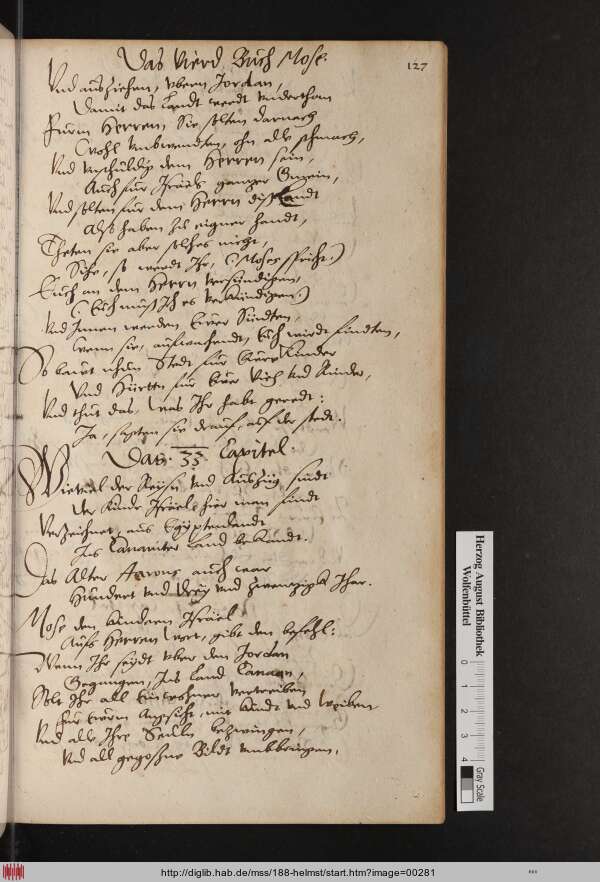 Das Vierd Buch Mose.
127
Vnd ausziehen, vbern Jordan,
Damit das Landt werdt vnderthan
Fürm Herren, Sie solten darnach
Wohl vmbwendten, ohn alle schmach,
Vnd vnschuldig dem Herren sein,
Auch für Israels gantzer Gmein,
Vnd solten für dem Herrn diß Landt
Alß haben zu eigner handt,
Theten sie aber solches nicht,
Sihe, so werdt Ihr, (Moses spricht.)
Euch an dem Herrn versündigen,
(Euch muß Ich es verkündigen.)
Vnd Innen werden Ewer Sündten,
wenn sie, aufwachendt, Euch wirdt findten,
So bauwt nhun Stedt für Ewre Kinder
Vnd Hürtten für Ewer Vieh vnd Rinder,
Vnd thut das, was Ihr habt geredt:
Ja, sagten sie drauf, auf der stedt.
Das. 33. Capitel.
Wieviel der Reysen vnd Auszug sindt
Der Kinder Israel, hier man findt
Verzeichnet, aus Egyptenlandt
Ins Cananiter Land bekandt.
Das Alter Aarons auch war
Hundert vnd Drey vnd zwenzigk Jhar.
Mose den Kindern Israel
Aufs Herren wort, gibt den befehl:
Wenn Ihr seydt vber den Jordan
Gegangen, Ins Land Canaan,
Solt Ihr all Einwohner vertreiben
Für Ewrm Angesicht, mit Kindt vnd Weiben
Vnd alle Ihre Seulln bezwingen,
Vnd all gegoßne Bildt vmbbringen,
Herzog August Bibliothek
Wolfenbüttel
0 1 2 3 4
Gray Scale
http://diglib.hab.de/mss/188-helmst/start.htm?image=00281